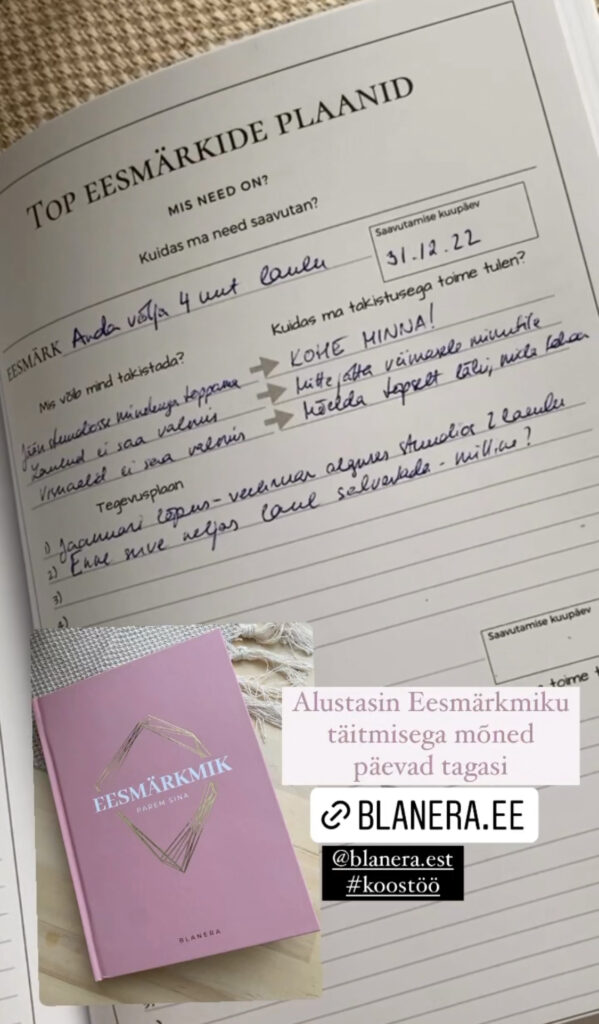 TOP EESMÄRKIDE PLAANID
MIS NEED ON?
Kuidas ma need saavutan?
Saavutamise kuupäev
31.12.22
EESMÄRK Anda välja 4 uut laulu
Mis võib mind takistada?
Kuidas ma takistusega toime tulen?
Jään stuudiosse minekuga toppama
KOHE MINNA!
Laulud ei saa valmis
Mitte jätta viimasele minutile
Visuaalid ei saa valmis
Mõelda täpselt läbi, mida
Tegevusplaan
1) Jaanuari lõpus - veebruari alguses stuudios 2 laulu
2) Enne suve neljas laul salvestada - milline?
3)
4)
Saavutamise kuupäev
toime t
EESMÄRKMIK
PAREM SINA
BLANERA
Alustasin Eesmärkmiku
täitmisega mõned
päevad tagasi
BLANERA.EE
@blanera.est
#koostöö